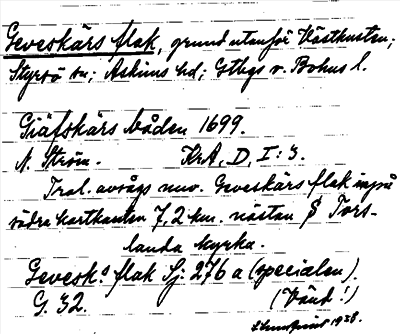 Geveskärs flak, grund utanför Västkusten;
Styrsö sn; Askims hd; Gtbgs o. Bohus l.
Giäfskärs båden 1699.
N. Ström. KrA, D, I: 3.
Trol. avsågs nuv. Geveskärs flak inpå
södra kartkanten 7,2 km. nästan S Tors-
landa kyrka.
Gevesk:s flak Sj: 276 a (specialen).
G. 32. (Vänd!)
1928.